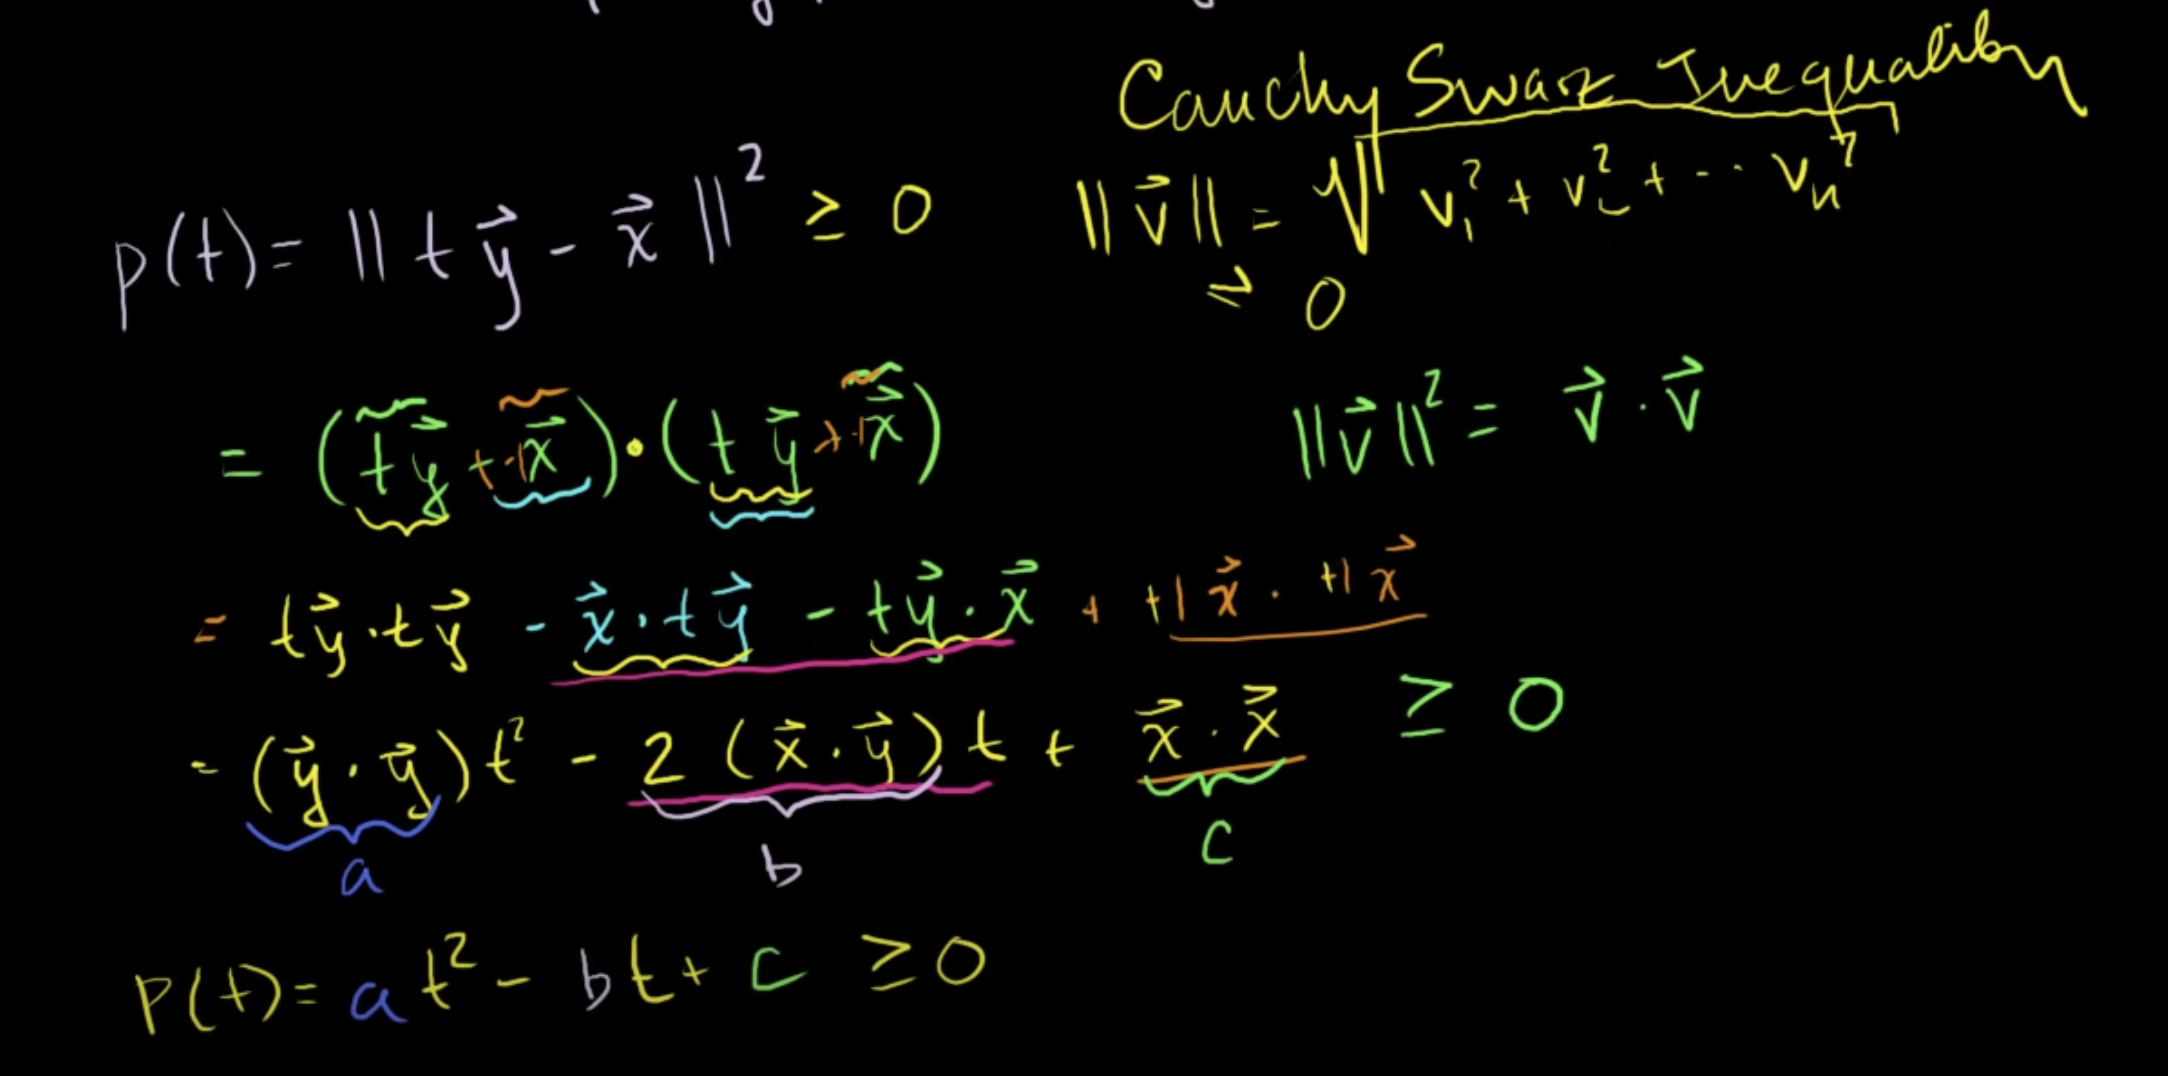 Cauchy Swarz Inequality
p(t) = ||t y⃗ - x⃗||² ≥ 0
||v⃗|| = √(v₁² + v₂² + ... vₙ²)
≥ 0
= (t y⃗ + -1x⃗) · (t y⃗ + -1x⃗)
||v⃗||² = v⃗ · v⃗
= t y⃗ · t y⃗ - x⃗ · t y⃗ - t y⃗ · x⃗ + +1 x⃗ · +1 x⃗
= (y⃗ · y⃗) t² - 2 (x⃗ · y⃗) t + x⃗ · x⃗ ≥ 0
a b c
P(t) = a t² - b t + c ≥ 0